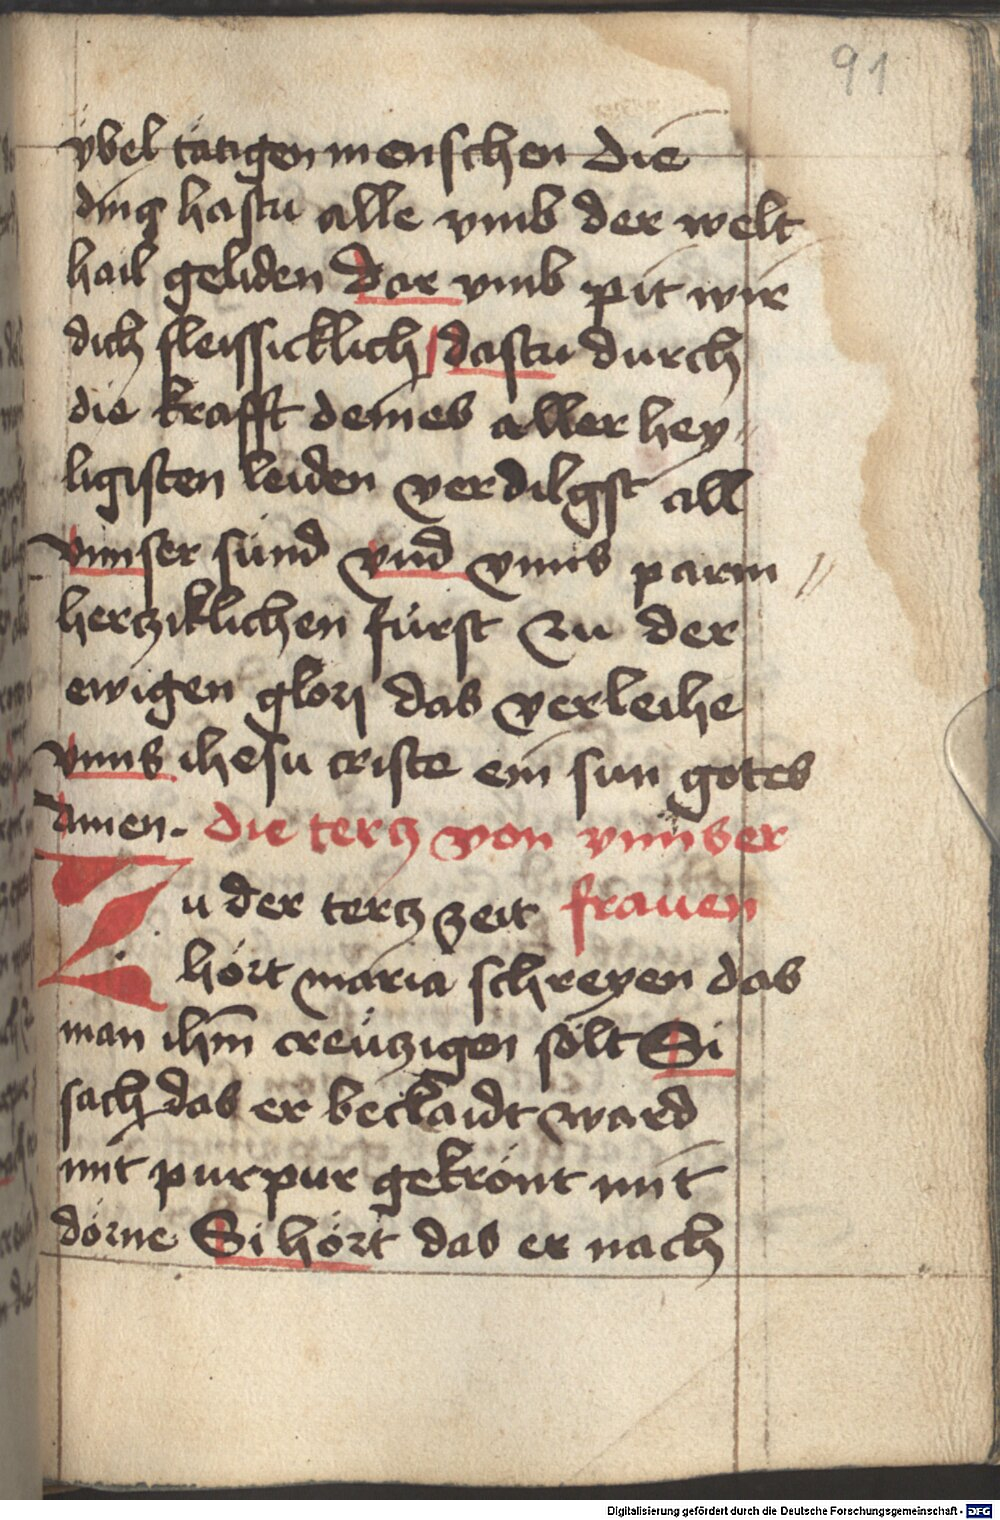 91
vbel tätigen menschen die
ding hastu alle vmb der welt
hail geliden Dar vmb pit wir
dich fleissicklich dastu durch
die krafft deines aller hey
ligisten leiden verdilgst all
vnnser sünd vnd vnns parm
hercziklichen fürst zu der
ewigen glori das verleihe
vnns ihesu criste ein sun gotes
Amen. die tercz von vnnser
Zu der tercz zeit frauen
hört maria schreyen das
man ihm̄ creüczigen sölt Si
sach das er beclaidt ward
mit purpur gekrönt mit
dörne Si hört das er nach
Digitalisierung gefördert durch die Deutsche Forschungsgemeinschaft - DFG